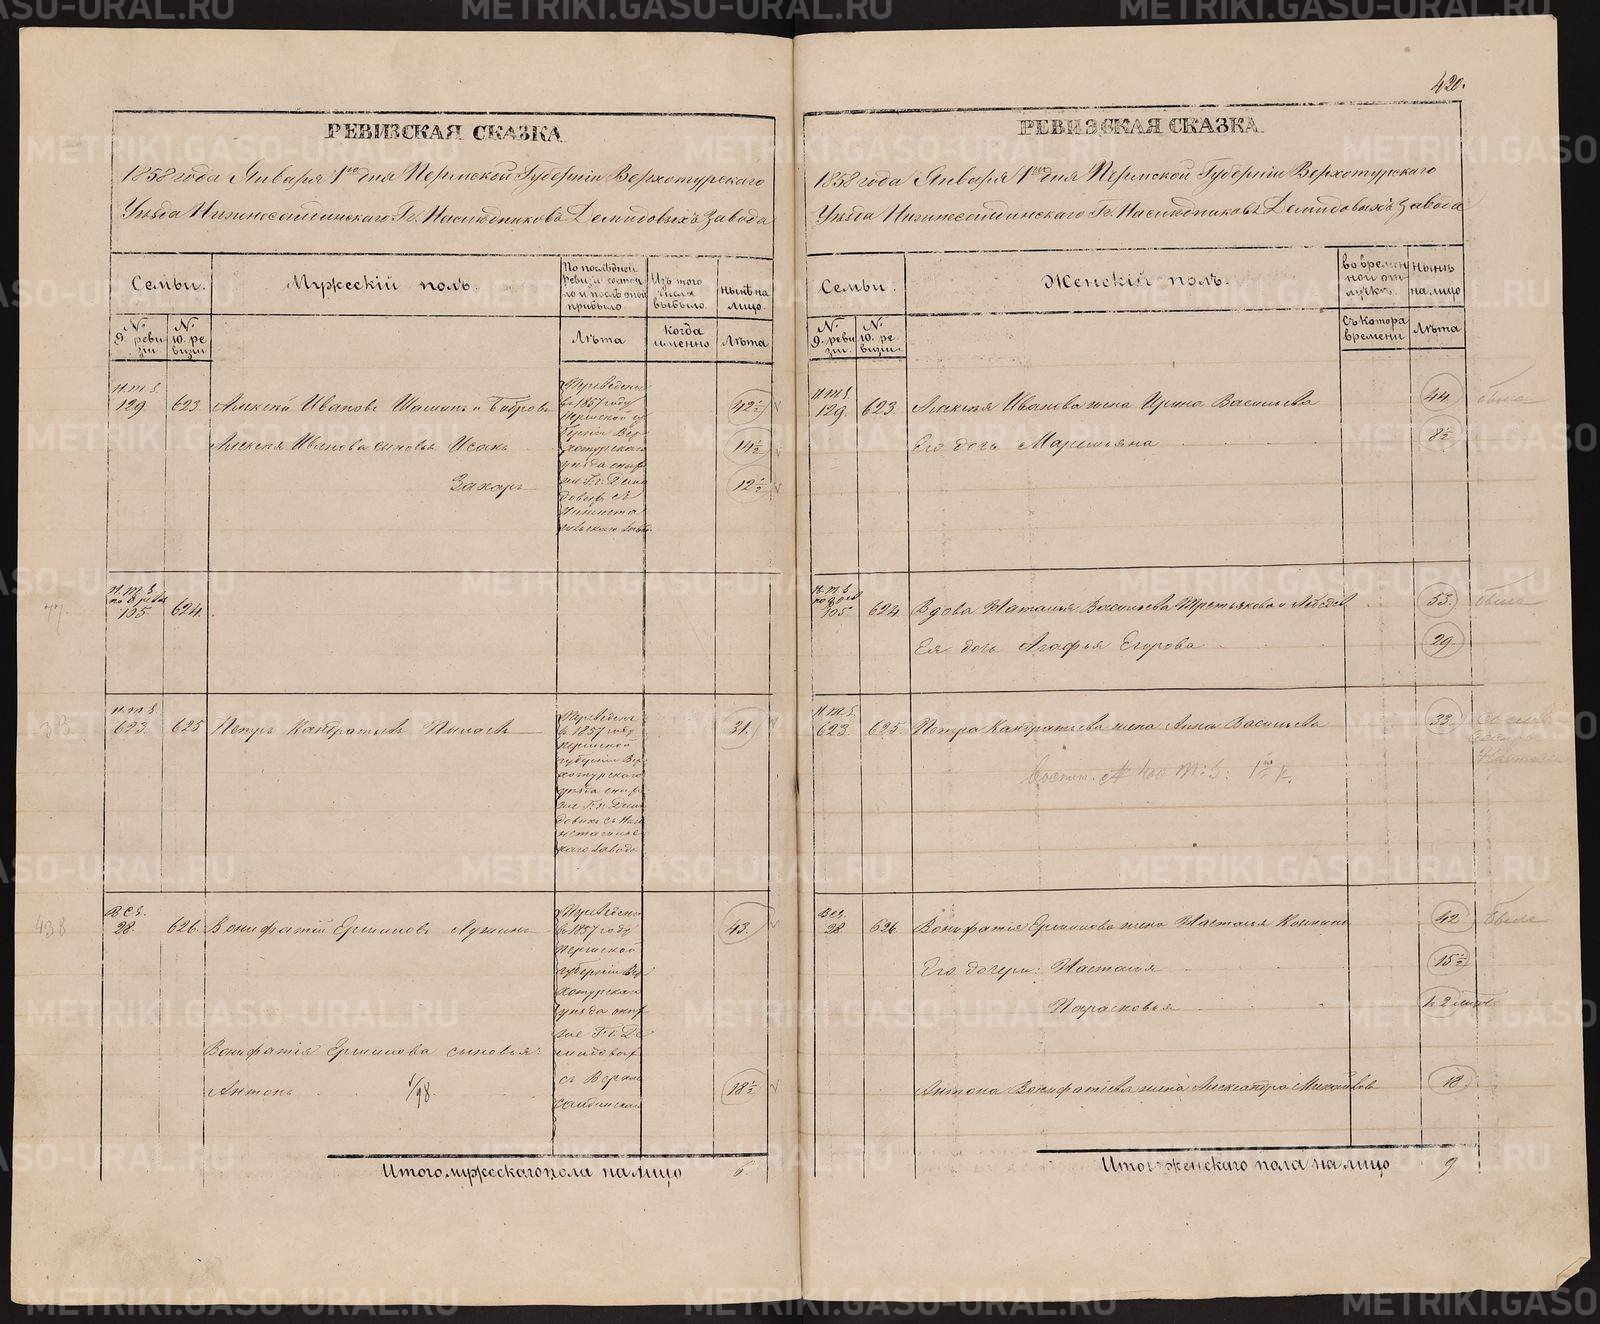 420.
РЕВИЗСКАЯ СКАЗКА
1858 года Января 1го дня Пермской Губерніи Верхотурскаго
Уѣзда Нижнесалдинскаго Гг. Наслѣдниковъ Демидовыхъ Завода
Семьи.
Мужескій полъ.
По послѣдней ревизіи состояло и послѣ оной прибыло
Изъ того числа выбыло
нынѣ на лицо.
№ 9. ревизіи
№ 10. ревизіи
Лѣта
когда именно
Лѣта
Н.Т.З.
129
623
Алексѣй Ивановъ Шашинъ и Бобровъ
42½
Алексѣя Иванова сыновья Исакъ
14½
Захаръ
12½
Переведены
въ 1857 году
Пермской гу
берніи Вер
хотурскаго
уѣзда
Гг. Деми
довыхъ съ
Нижнета
гильскаго завода
77.
Н.Т.З.
по 8 ревиз
705
624.
Н.Т.З.
623.
625
Петръ Кандратьевъ Пылаевъ
31.
Переведенъ
въ 1857 году
Пермской
губерніи Вер
хотурскаго
уѣзда
Гг. Деми
довыхъ съ Ниж
нетагильс
каго завода
438
В.С.З.
28
626.
Вонифатій Ермиловъ Лужинъ
43.
Переведены
въ 1857 году
Пермской
губерніи Вер
хотурскаго
уѣзда
Гг. Де
мидовыхъ
съ Верхне
салдинскаго
Вонифатія Ермилова сыновья:
Антонъ
1/98.
18½
Итого мужескаго пола на лицо
6
РЕВИЗСКАЯ СКАЗКА
1858 года Января 1го дня Пермской Губерніи Верхотурскаго
Уѣзда Нижнесалдинскаго Гг. Наслѣдниковъ Демидовыхъ Завода
Семьи.
Женскій полъ.
во временной отлучкѣ.
Нынѣ на лицо
№ 9. ревизіи.
№ 10. ревизіи
Съ котора времени
Лѣта
Н.Т.З.
129.
623.
Алексѣя Иванова жена Ирина Васильева
44.
Его дочь Маремьяна
8½
Н.Т.З.
по 8 рев
705
624
Вдова Наталья Васильева Третьякова и Лебедев
53.
Ея дочь Агафья Егорова
29
Н.Т.З.
623
625
Петра Кандратьева жена Анна Васильева
33.
В.С.З.
28
626
Вонифатія Ермилова жена Настасья
42
Его дочери: Настасья
15½
Парасковья
Антона Вонифатіева жена Александра Михайлов
18
Итого женскаго пола на лицо
9
METRIKI.GASO-URAL.RU